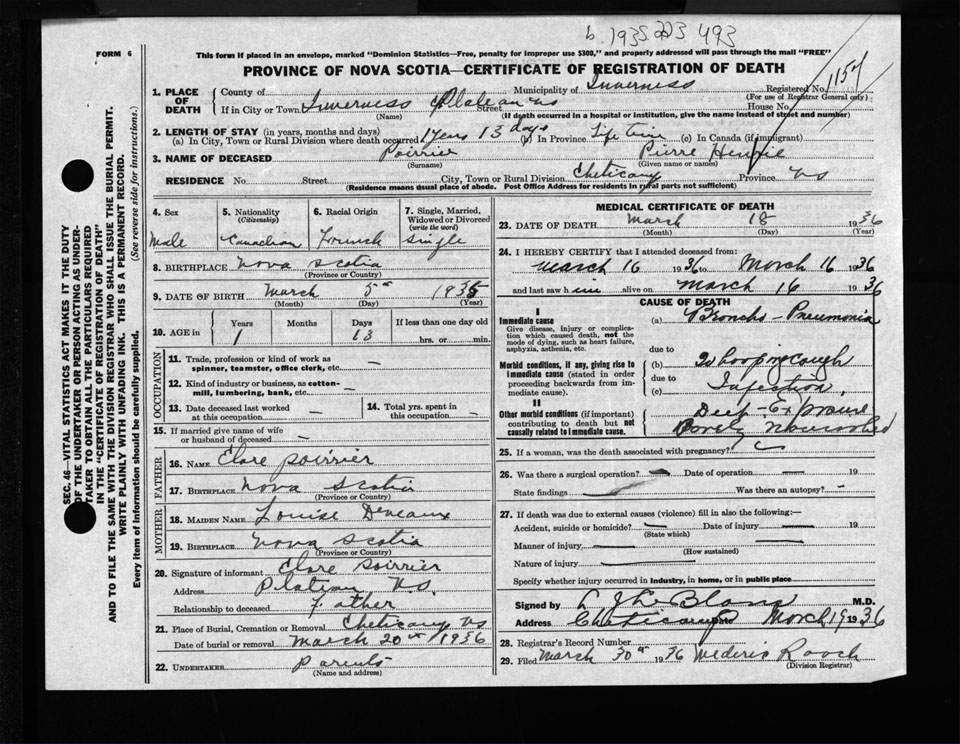 b. 1935 223 493
FORM 6
This form if placed in an envelope, marked "Dominion Statistics—Free, penalty for improper use $300," and properly addressed will pass through the mail "FREE"
PROVINCE OF NOVA SCOTIA—CERTIFICATE OF REGISTRATION OF DEATH
1157
1. PLACE OF DEATH
County of Municipality of Inverness Registered No.
(For use of Registrar General only)
If in City or Town Inverness Plateau NS Street House No.
(Name) (If death occurred in a hospital or institution, give the name instead of street and number)
2. LENGTH OF STAY (in years, months and days)
(a) In City, Town or Rural Division where death occurred 1 years 13 days (b) In Province Life time (c) In Canada (if immigrant)
3. NAME OF DECEASED Poirrier Pierre Henrie
(Surname) (Given name or names)
RESIDENCE No. Street City, Town or Rural Division Cheticamp Province NS
(Residence means usual place of abode. Post Office Address for residents in rural parts not sufficient)
4. Sex Male
5. Nationality (Citizenship) Canadian
6. Racial Origin French
7. Single, Married, Widowed or Divorced (write the word) Single
8. BIRTHPLACE Nova Scotia
(Province or Country)
9. DATE OF BIRTH March 5th 1935
(Month) (Day) (Year)
10. AGE in
Years Months Days If less than one day old
1 13 hrs. or min.
OCCUPATION
11. Trade, profession or kind of work as spinner, teamster, office clerk, etc. —
12. Kind of industry or business, as cotton-mill, lumbering, bank, etc. —
13. Date deceased last worked at this occupation —
14. Total yrs. spent in this occupation —
15. If married give name of wife or husband of deceased —
FATHER
16. NAME Clare Poirrier
17. BIRTHPLACE Nova Scotia
(Province or Country)
MOTHER
18. MAIDEN NAME Louise Deveaux
19. BIRTHPLACE Nova Scotia
(Province or Country)
20. Signature of informant Clare Poirrier
Address Plateau N.S.
Relationship to deceased Father
21. Place of Burial, Cremation or Removal Cheticamp NS
Date of burial or removal March 20th 1936
22. UNDERTAKER Parents
(Name and address)
MEDICAL CERTIFICATE OF DEATH
23. DATE OF DEATH March 18 1936
(Month) (Day) (Year)
24. I HEREBY CERTIFY that I attended deceased from:
March 16 1936 to March 16 1936
and last saw him alive on March 16 1936
CAUSE OF DEATH
I
Immediate cause
Give disease, injury or complication which caused death, not the mode of dying, such as heart failure, asphyxia, asthenia, etc.
(a) Broncho-Pneumonia
due to
Morbid conditions, if any, giving rise to immediate cause (stated in order proceeding backwards from immediate cause).
(b) Whooping Cough
due to
(c) Infection
II
Other morbid conditions (if important) contributing to death but not causally related to immediate cause.
Nourished
25. If a woman, was the death associated with pregnancy?
26. Was there a surgical operation? — Date of operation — 19
State findings Was there an autopsy? -
27. If death was due to external causes (violence) fill in also the following:—
Accident, suicide or homicide? — Date of injury — 19
(State which)
Manner of injury —
(How sustained)
Nature of injury —
Specify whether injury occurred in industry, in home, or in public place
Signed by L J LeBlanc M.D.
Address Cheticamp March 19 1936
28. Registrar's Record Number
29. Filed March 30th 1936 Roach
(Division Registrar)
SEC. 46—VITAL STATISTICS ACT MAKES IT THE DUTY
OF THE UNDERTAKER OR PERSON ACTING AS UNDER-
TAKER TO OBTAIN ALL THE PARTICULARS REQUIRED
IN THE "CERTIFICATE OF REGISTRATION OF DEATH"
AND TO FILE THE SAME WITH THE DIVISION REGISTRAR WHO SHALL ISSUE THE BURIAL PERMIT.
WRITE PLAINLY WITH UNFADING INK. THIS IS A PERMANENT RECORD.
Every item of information should be carefully supplied. (See reverse side for instructions.)